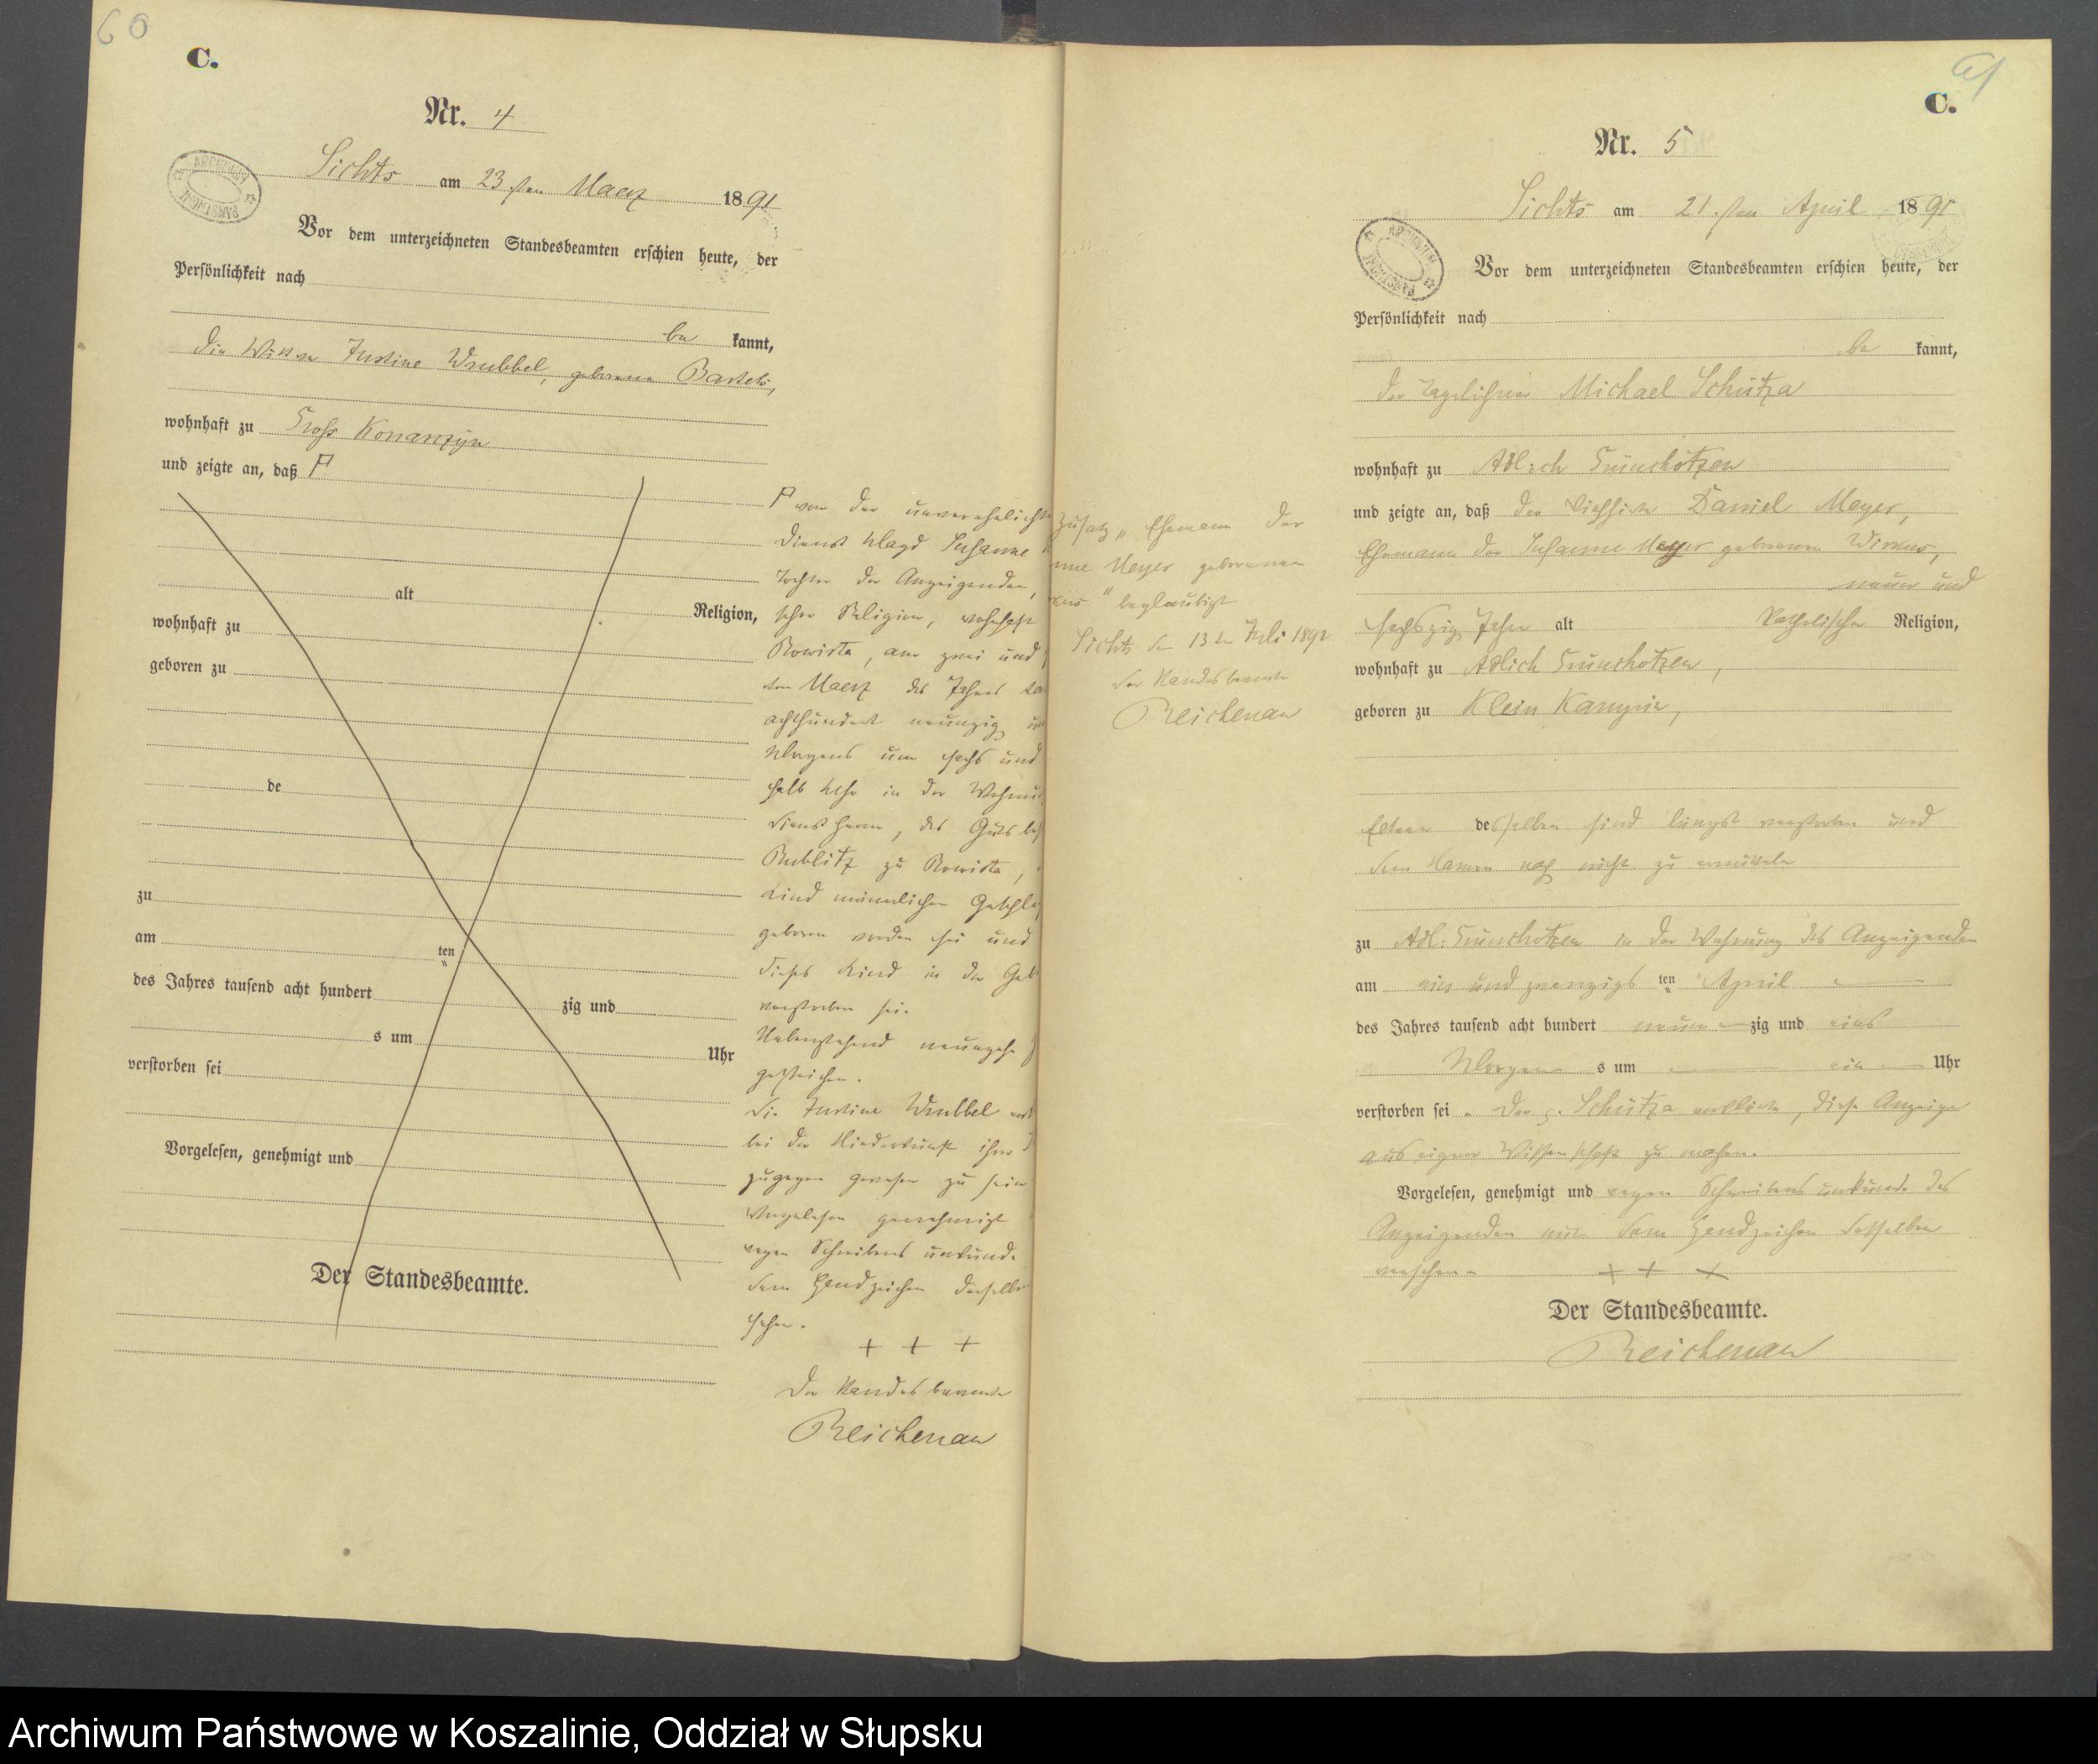 60
C.
Nr. 4
Sichts am 23sten Maerz 1891
Vor dem unterzeichneten Standesbeamten erschien heute, der
Persönlichkeit nach
be kannt,
die Wittwe Justine Wrubbel, geborene Bartels,
wohnhaft zu Gross Konarzyn
und zeigte an, daß
alt Religion,
wohnhaft zu
geboren zu
de
zu
am ten
des Jahres tausend acht hundert zig und
s um Uhr
verstorben sei
Vorgelesen, genehmigt und
Der Standesbeamte.
von der unverehelicht
Dienst Magd Susanne
Tochter der Anzeigenden,
scher Religion, wohnhaft
am zwei und
ten Maerz des Jahres tau
achthundert neunzig un
Morgens um sechs und
halb Uhr in der Wohnu
Dienstherrn, des Guts bes
Rublitz zu
Kind männlichen Geschle
geboren worden sei und
dieses Kind in der Geb
verstorben sei.
Nebenstehend neunzehn
gestrichen.
Die Justine Wrubbel
bei der Niederkunft ihrer
zugegen gewesen zu sein
Vorgelesen genehmigt
wegen Schreibens unkunde
dem Handzeichen derselben
sehen.
+ + +
Der Standesbeamte
Reichenau
61
C.
Nr. 5
Sichts am 21.sten April 1891
ARCHIWUM PAŃSTWOWE
Vor dem unterzeichneten Standesbeamten erschien heute, der
Persönlichkeit nach
be kannt,
der Tagelöhner Michael Schütza
wohnhaft zu Adlich
und zeigte an, daß der Daniel Meyer,
Ehemann der Susanne Meyer geborenen Wirkus,
neun und
sechszig Jahre alt katholischer Religion,
wohnhaft zu Adlich
geboren zu Klein
Eltern desselben sind längst verstorben und
dem Namen nach nicht zu ermitteln
zu Adl: in der Wohnung des Anzeigenden
am ein und zwanzigs ten April
des Jahres tausend acht hundert neun zig und eins
Morgen s um ein Uhr
verstorben sei. Der p. Schütza erklärte, diese Anzeige
aus eigner Wissenschaft zu machen.
Vorgelesen, genehmigt und wegen Schreibens unkunde des
Anzeigenden mit dem Handzeichen desselben
versehen.
+ + +
Der Standesbeamte.
Reichenau
Zusatz „Ehemann der
nne Meyer geborenen
kus" beglaubigt
Sichts den 13ten Juli 1892
Der Standesbeamte
Reichenau
Archiwum Państwowe w Koszalinie, Oddział w Słupsku